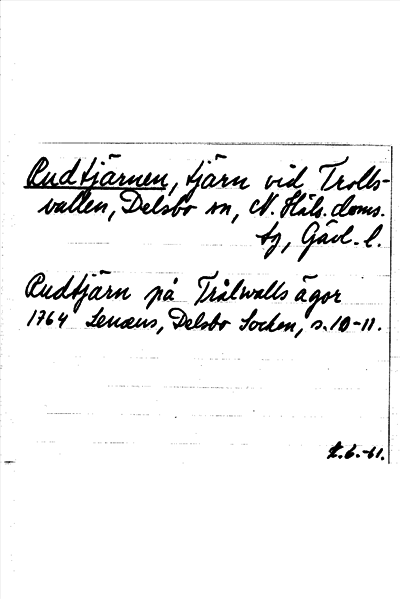 Rudtjärnen, tjärn vid Trolls-
vallen, Delsbo sn, N. Häls. doms.
tg, Gävl. l.
Rudtjärn på Trålwalls ägor
1764 Lenæus, Delsbo Socken, s. 10-11.
6.-61.